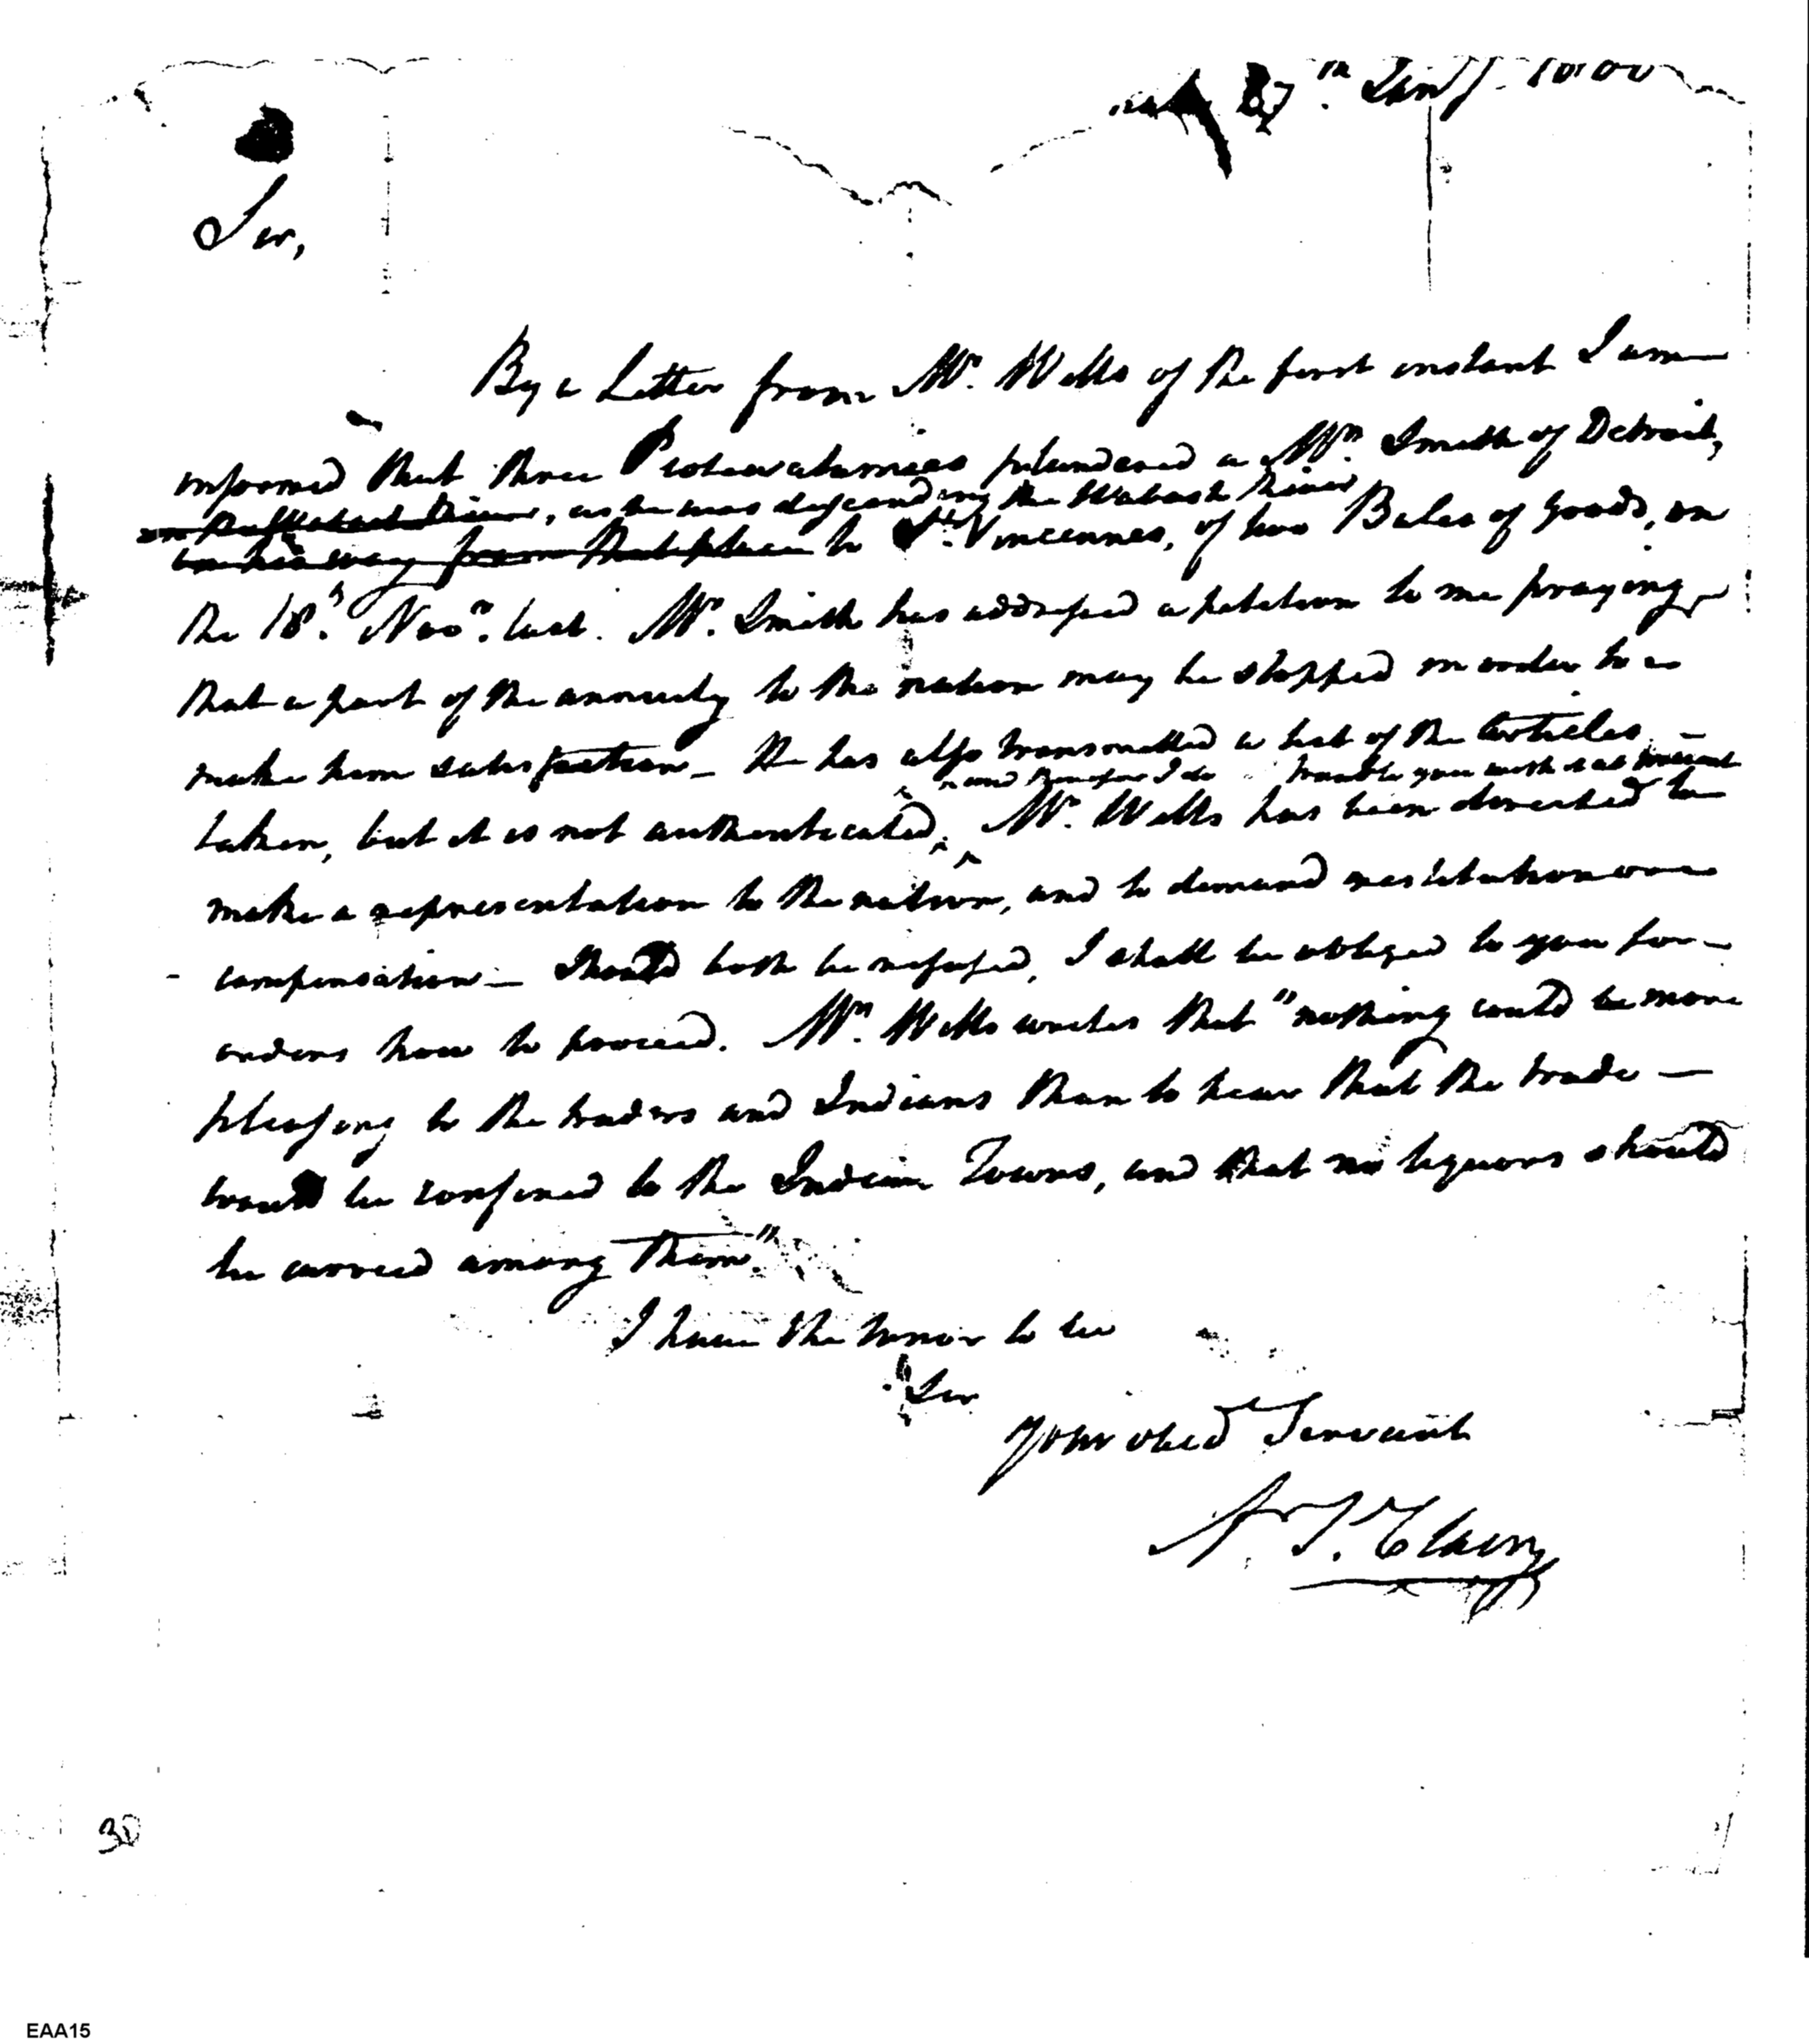 27th Jany. 1800
Sir,
By a Letter from Mr. Wells of the first instant I am
informed that three Poteawatamies plundered a Mr. Smith of Detroit,
on the Wabash River, as he was descending the Wabash River
on his way from that place to St. Vincennes, of two Bales of Goods, on
the 18th. Novr. last. Mr. Smith has addressed a petition to me praying
that a part of the annuity to the nation may be stopped in order to
make him satisfaction_ He has also transmitted a list of the articles _
and therefore I do trouble you with it at present
taken, but it is not authenticated, Mr. Wells has been directed to
make a representation to the nation, and to demand restitution or
compensation _ Should both be refused, I shall be obliged to you for _
orders how to proceed. Mr. Wells writes that "nothing could be more
pleasing to the traders and Indians than to hear that the trade —
would be confined to the Indian Towns, and that no liquors should
be carried among them."
I have the honor to be
Sir
Your obed Servant
Ar. St. Clair
30
EAA15